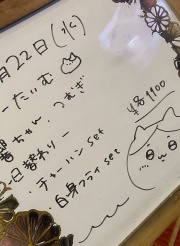 月22日(水)
ーたいむ
ちゃん・つむぎ
日替わり
・チャーハン set
・白身フライ set